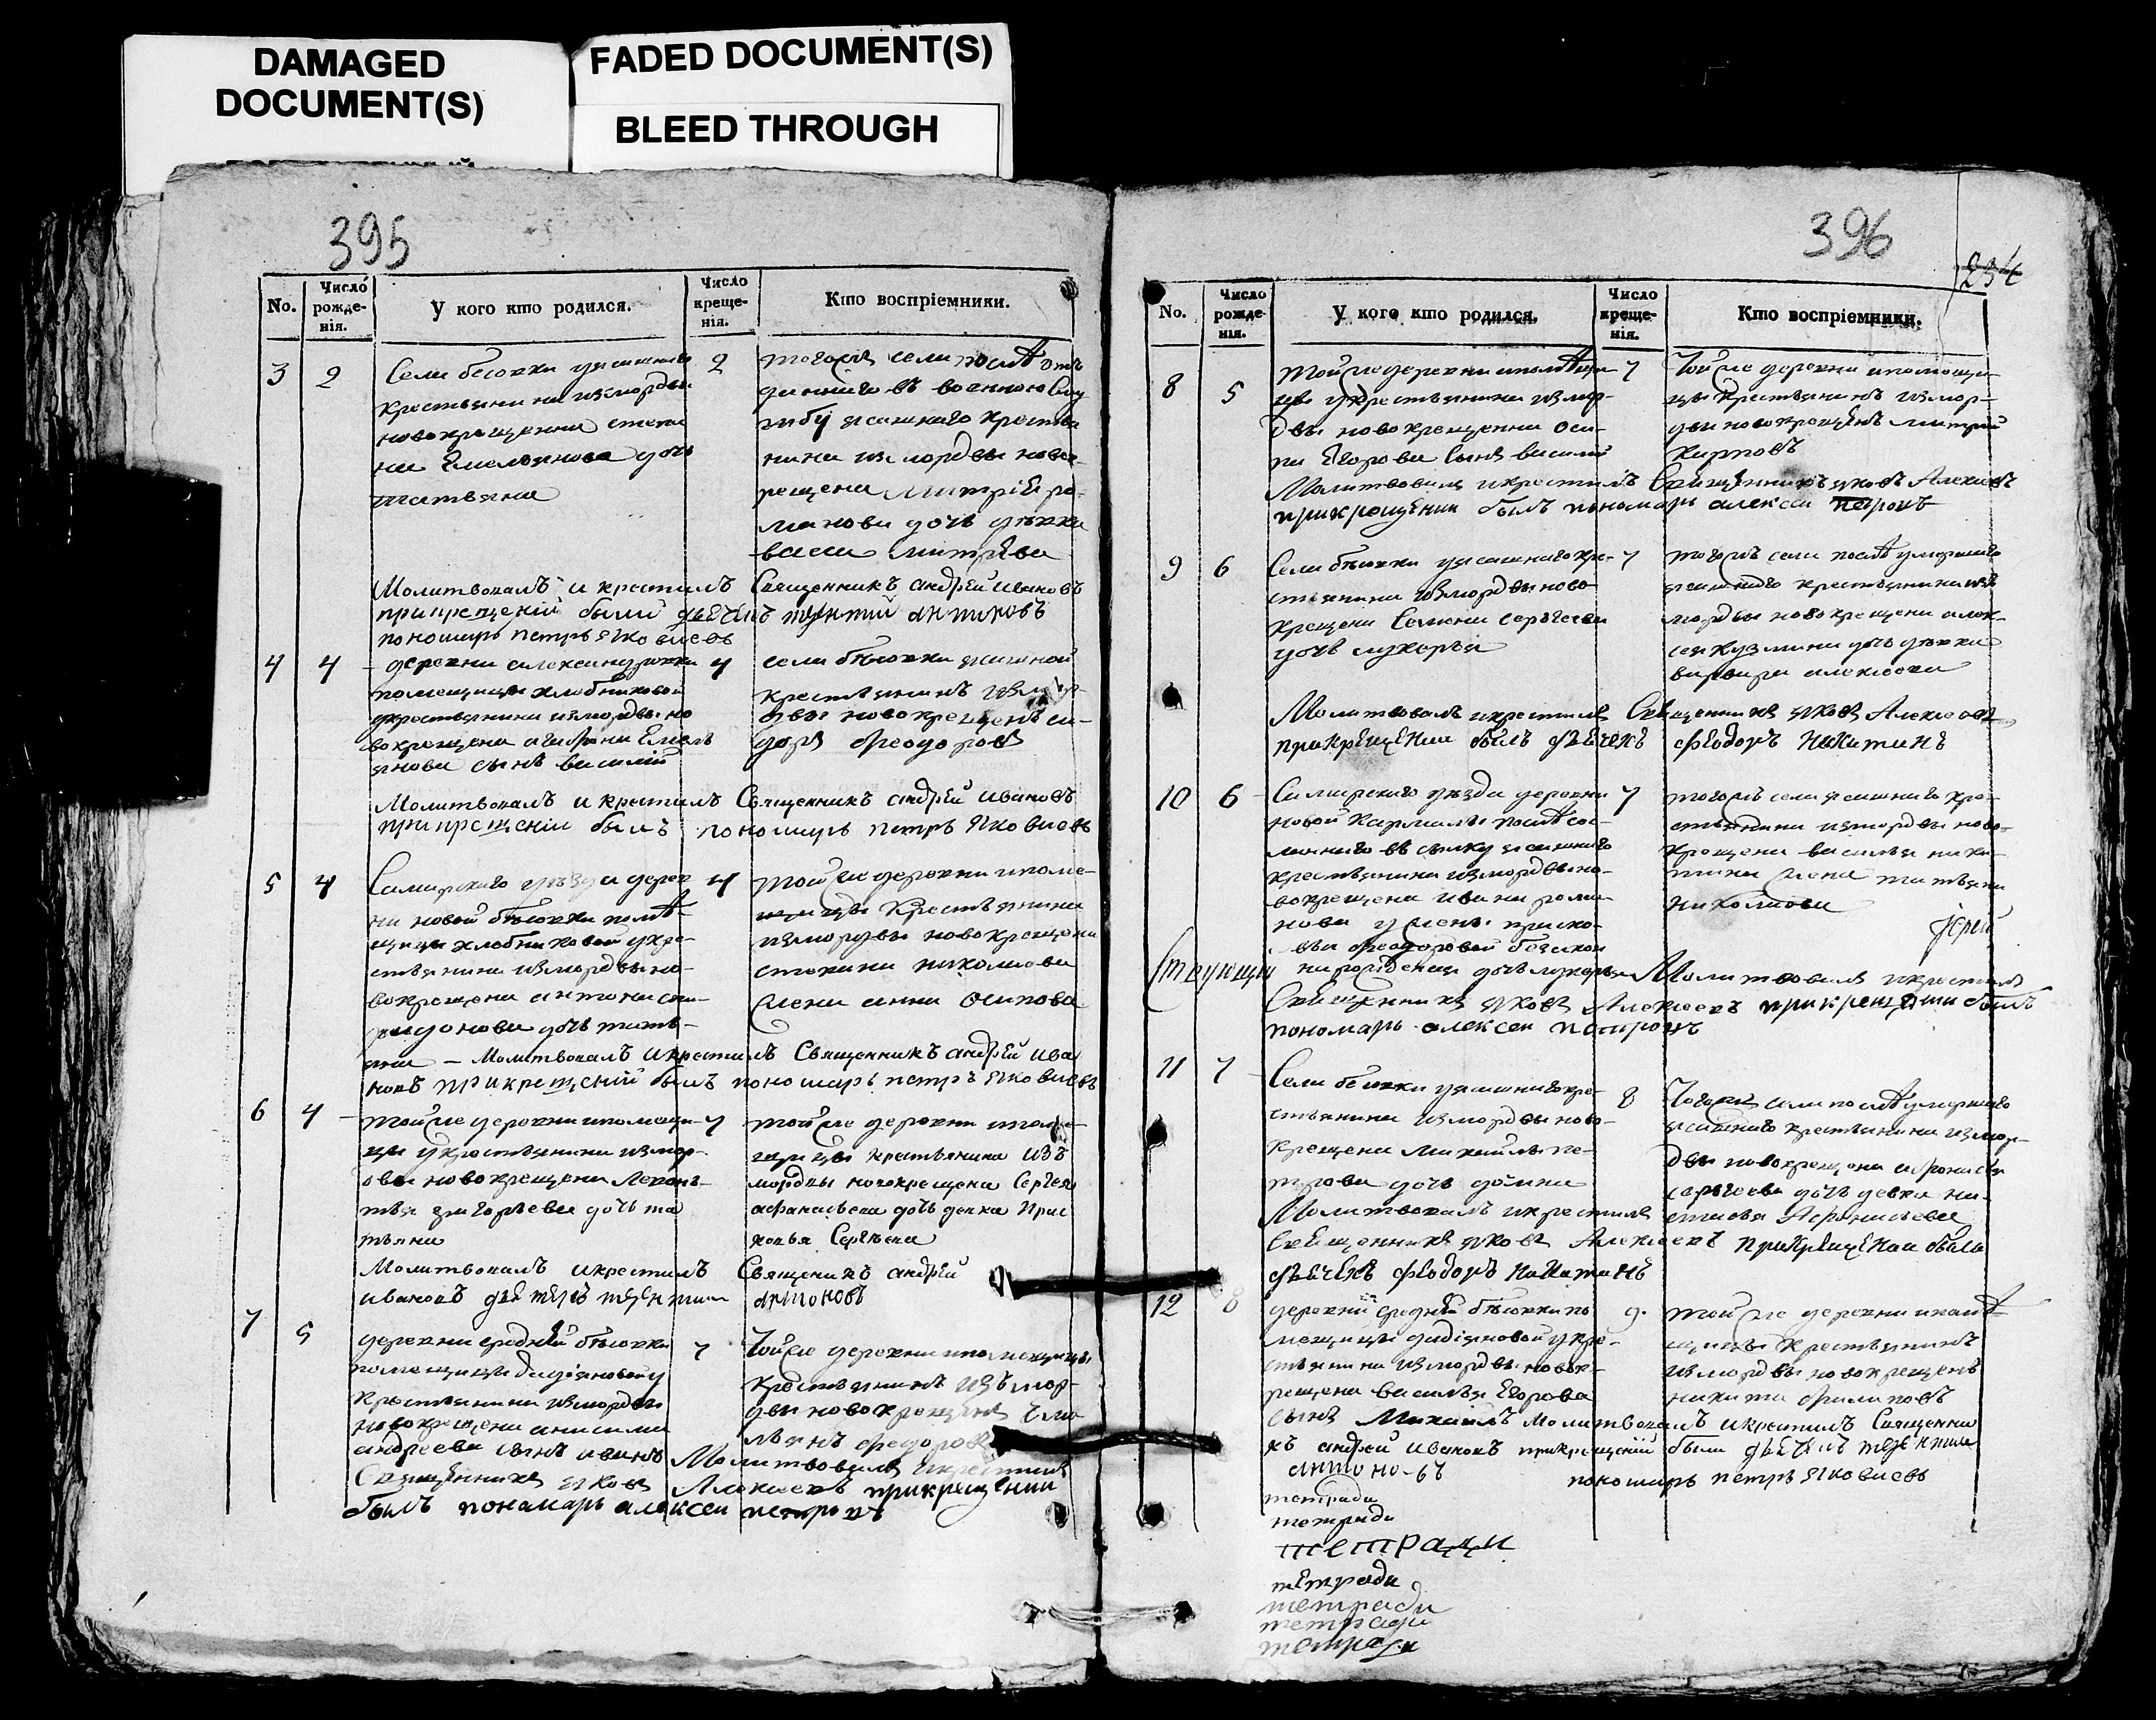 DAMAGED
DOCUMENT(S)
FADED DOCUMENT(S)
BLEED THROUGH
395
No.
Число рожде- нія.
У кого кто родился.
Число креще- нія.
Кто воспріемники.
3 2
Села бѣловки
крестьянина измордвы
новокрещенна степа
на Емельянова дочь
татьяна
2
тогожъ села послѣ отъ
даннаго въ военною слу
жбу ясашнаго крестья
нина измордвы новок
рещена митрѣй ро
манова дочь дѣвка
васса митрева
Молитвовалъ и крестилъ Священникъ андрѣй ивановъ
при крещеніи были дьячекъ терентій антоновъ
пономарь петръ яковлевъ
4 4
деревни александровки
помещицы хлебниковой
укрестьянина измордвы но
вокрещена агафона Емель
янова сынъ василій
4
села бѣловки ясашной
крестьянинъ измор
двы новокрещенъ си
доръ феодоровъ
Молитвовалъ и крестилъ Священникъ андрѣй ивановъ
при крещеніи былъ пономарь петръ яковлевъ
5 4
Самарскаго уѣзда дерев
ни новой бѣловки помѣ
щицы хлебниковой укре
стьянина измордвы но
вокрещена антона спи
ридонова дочь тать
4
тойже деревни ипоме
щицы крестьянина
измордвы новокрещена
степана николаева
жена анна осипова
яна — Молитвовалъ и крестилъ Священникъ андрѣй ива
новъ при крещеніи былъ пономарь петръ яковлевъ
6 4
тойже деревни ипомещи
цы укрестьянина измор
двы новокрещена Леонь
тья григорьева дочь та
тьяна
7
тойже деревни ипоме
щицы крестьянина изъ
мордвы новокрещена Сергея
афанасьева дочь девка Прас
ковья Сергѣева
Молитвовалъ и крестилъ Священикъ андрѣй
ивановъ
антоновъ
7 5
деревни средней бѣловки
помещицы
крестьянина измордвы
новокрещена анисима
андреева сынъ иванъ
7
Тойже деревни ипомещицы
крестьянинъ изъ мор
двы новокрещенъ Емѣ
льянъ феодоровъ
Молитвовалъ и крестилъ
Священникъ яковъ Алексеевъ при крещении
былъ пономарь алексеи петровъ
396
No.
Число рожде- нія.
У кого кто родился.
Число креще- нія.
Кто воспріемники.
8 5
тойже деревни ипомѣщи
цы укрестьянина измор
двы новокрещенна оси
па Егорова сынъ василій
7
Тойже деревни ипомещи
цы крестьянинъ измор
двы новокрещенъ митрей
карповъ
Молитвовалъ и крестилъ Священникъ яковъ Алексеевъ
при крещении былъ пономарь алексеи петровъ
9 6
Села бѣловки уясашнаго кре
стьянина измордвы ново
крещена Семена сергеева
дочь лукерья
7
тогожъ села послѣ умершаго
ясашнаго крестьянина изъ
мордвы новокрещена алек
сея кузмина дочь девка
варвара алексеева
Молитвовалъ и крестилъ Священникъ яковъ Алексеевъ
при крещении былъ дьячекъ феодоръ никитинъ
10 6
Самарскаго уѣзда деревни
новой кармалы послѣ сос
ланнаго въ сылку ясашнаго
крестьянина измордвы но
вокрещена ивана рома
нова ужены праско
вьи феодоровой
нарожденна дочь лукерья
7
тогожъ села ясашнаго кре
стьянина измордвы ново
крещена василья ники
тина жена татьяна
николаева
Молитвовалъ и крестилъ
Священникъ яковъ Алексеевъ при крещении былъ
пономарь алексеи петровъ
11 7
Села бѣловки уясашнаго кре
стьянина измордвы ново
крещена михайлы пе
трова дочь домна
8
Тогожъ села послѣ умершаго
ясашнаго крестьянина измор
двы новокрещена афонасья
сергеева дочь девка на
стасья Афонасьева
Молитвовалъ и крестилъ
Священникъ яковъ Алексеевъ при крещении былъ
дьячекъ феодоръ никитинъ
12 8
деревни средней бѣловки по
мещицы укре
стьянина измордвы новок
рещена василья Егорова
сынъ Михаилъ
9
тойже деревни ипомѣ
щицы крестьянинъ
измордвы новокрещенъ
никита филиповъ
Молитвовалъ и крестилъ Священни
къ андрей ивановъ при крещеніи были дьячекъ терентии
антоно-въ пономарь петръ яковлевъ
тетради
тетради
тетради
тетради
тетради
тетради
тетради